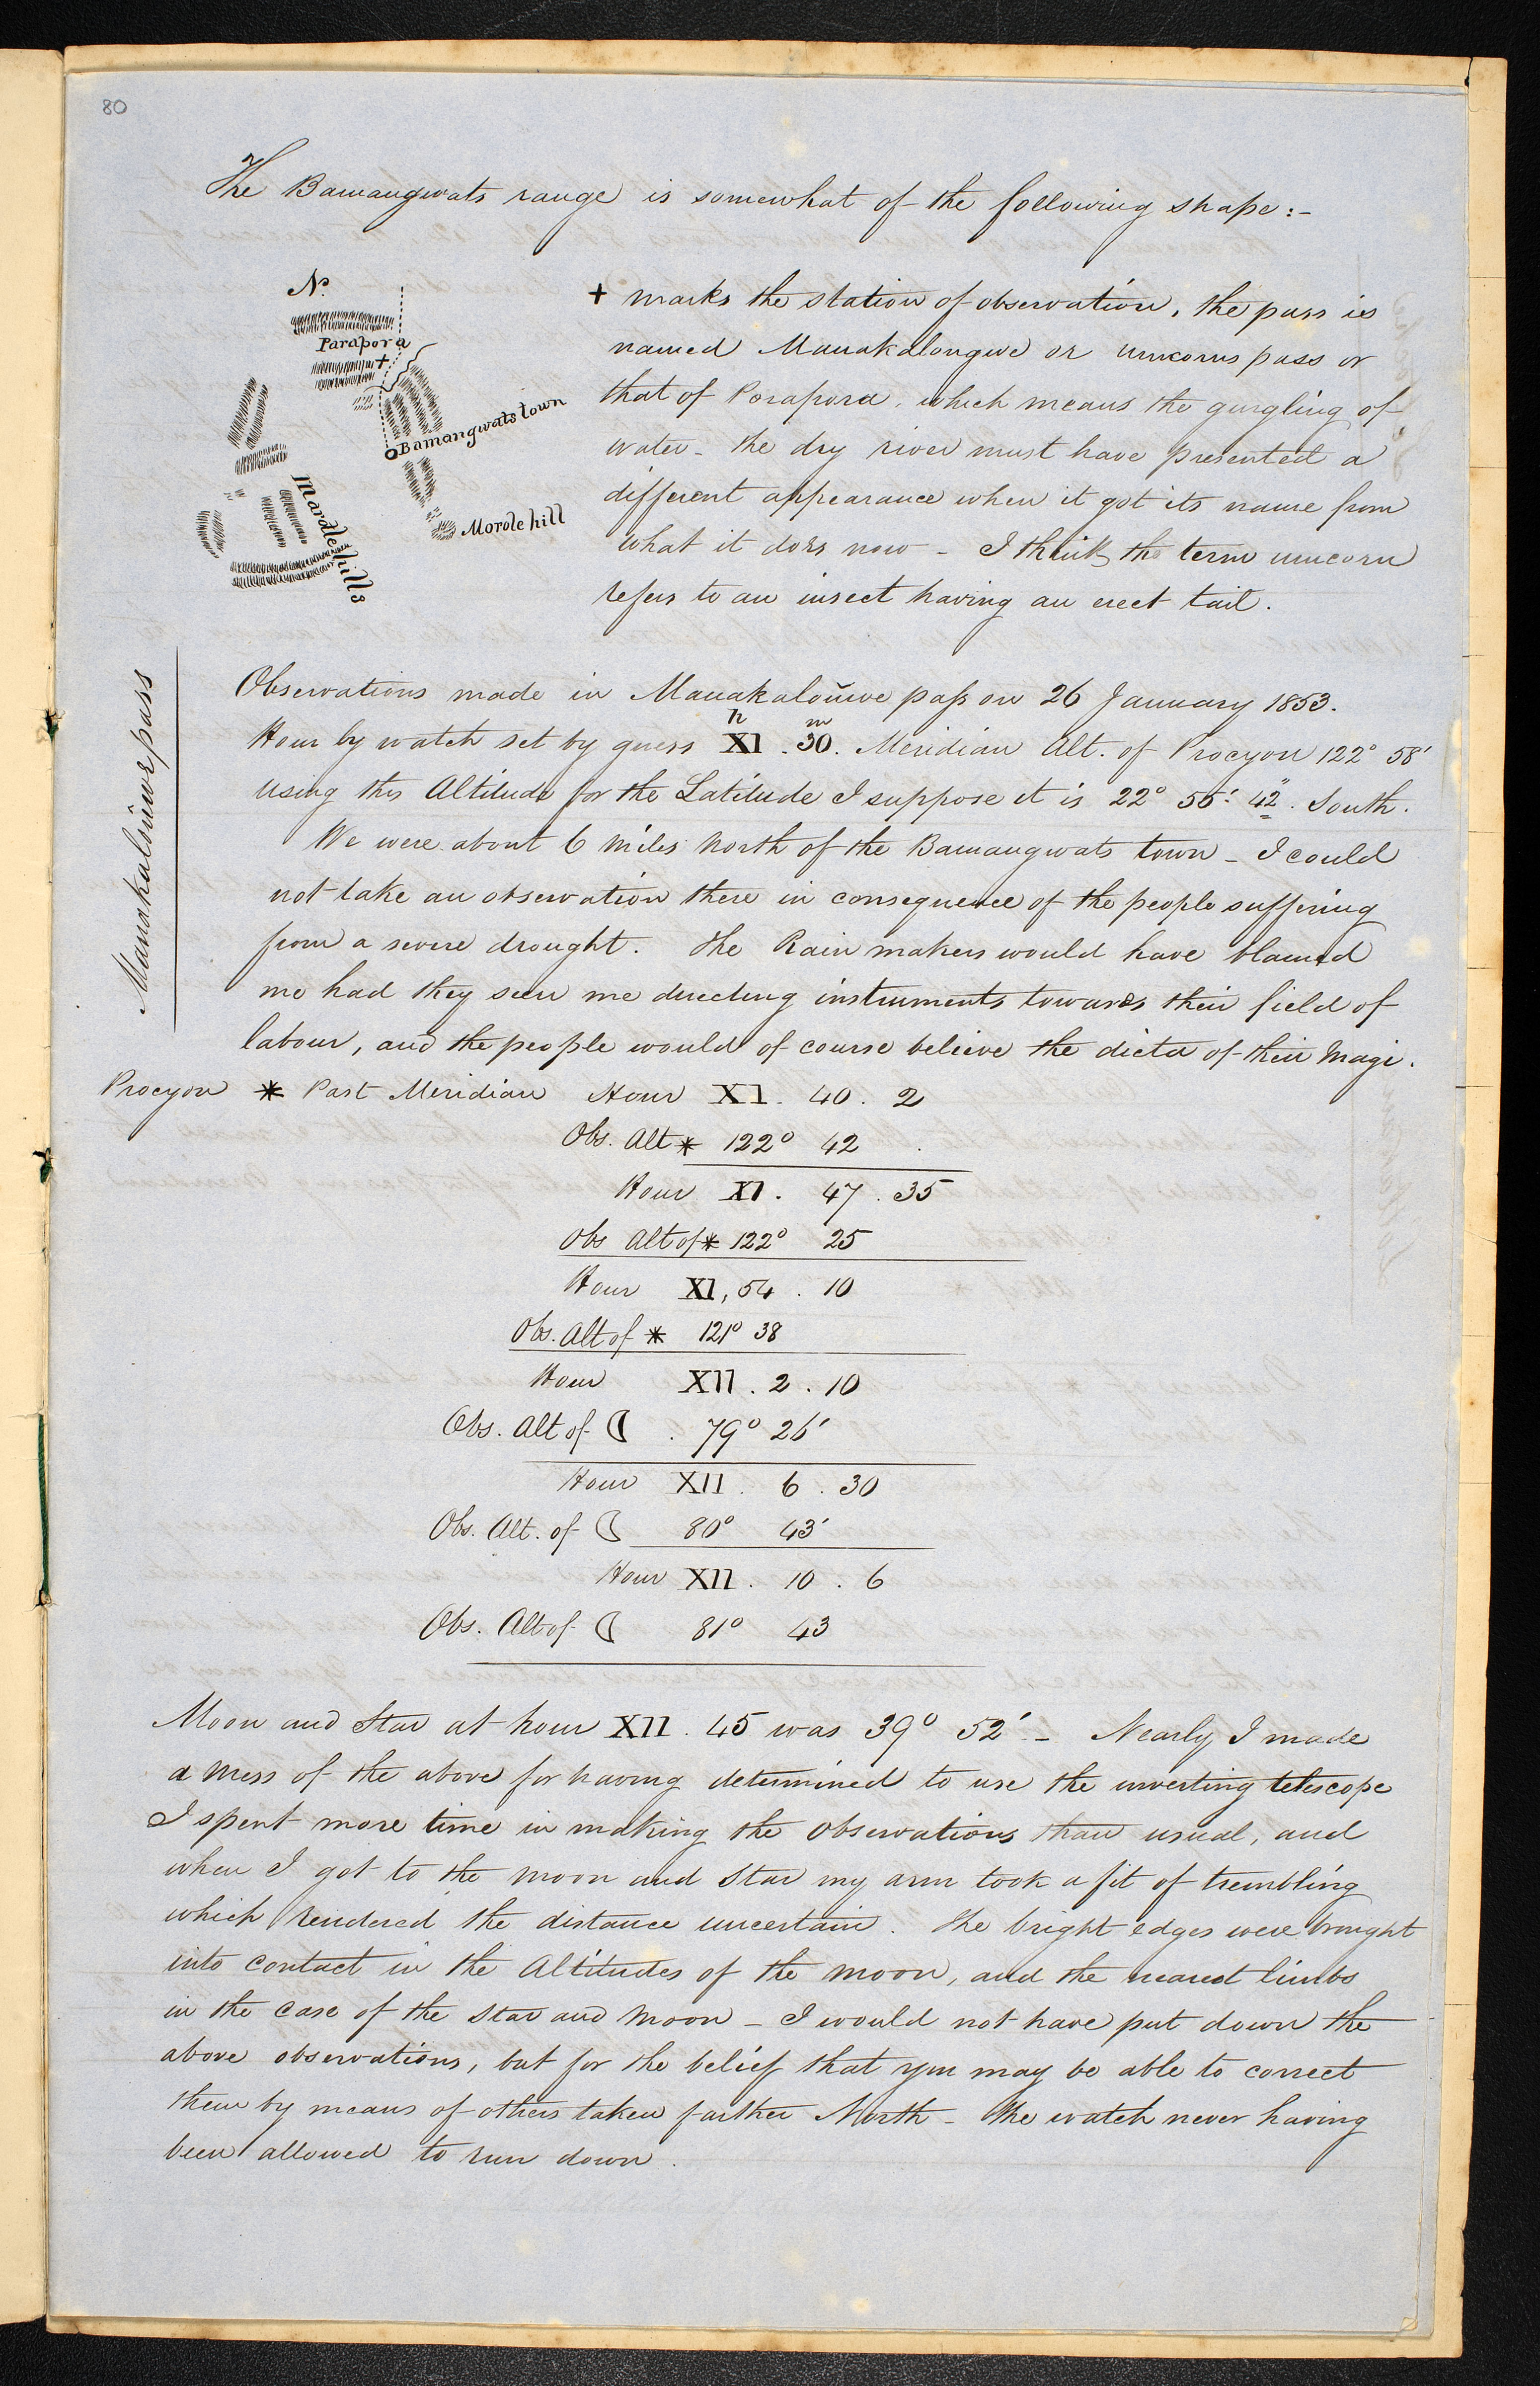 80
The Bamangwats range is somewhat of the following shape:-
N.
Parapora
+
Bamangwats town
Mardle hills
Morole hill
+ marks the station of observation, the pass is
named Manakalongwe or unicorns pass or
that of Porapora, which means the gurgling of
water - the dry river must have presented a
different appearance when it got its name from
what it does now - I think the term unicorn
refers to an insect having an erect tail.
Manakaloñwe pass
Observations made in Manakaloñwe pass on 26 January 1853.
Hour by watch set by guess XI h. 30 m. Meridian Alt. of Procyon 122° 58'
using this Altitude for the Latitude I suppose it is 22° 55' 42" South.
We were about 6 miles North of the Bamangwats town - I could
not take an observation there in consequence of the people suffering
from a severe drought. The Rain makers would have blamed
me had they seen me directing instruments towards their field of
labour, and the people would of course believe the dicta of their Magi.
Procyon * Past Meridian Hour XI. 40. 2
Obs. Alt * 122° 42
Hour XI. 47. 35
Obs Alt of * 122° 25
Hour XI, 54. 10
Obs. Alt of * 121° 38
Hour XII. 2. 10
Obs. Alt of ☾. 79° 26'
Hour XII. 6. 30
Obs. Alt. of ☾ 80° 43'
Hour XII. 10. 6
Obs. Alt of ☾ 81° 43
Moon and Star at hour XII. 45 was 39° 52' - Nearly I made
a mess of the above for having determined to use the inverting telescope
I spent more time in making the observations than usual, and
when I got to the moon and star my arm took a fit of trembling
which rendered the distance uncertain. The bright edges were brought
into contact in the Altitudes of the moon, and the nearest limbs
in the case of the star and moon - I would not have put down the
above observations, but for the belief that you may be able to correct
them by means of others taken farther North - The watch never having
been allowed to run down.